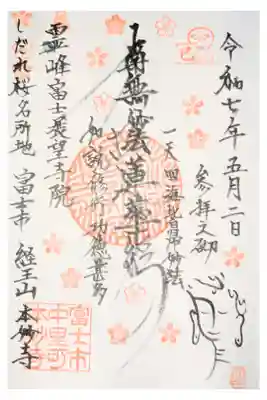 令和七年五月二日
参拝之砌
一天四海皆帰妙法
南無妙法蓮華経
如説修行功徳甚多
霊峰富士展望寺院
しだれ桜名所地 富士市 経王山 本妙寺
富士市
中里町
本妙寺